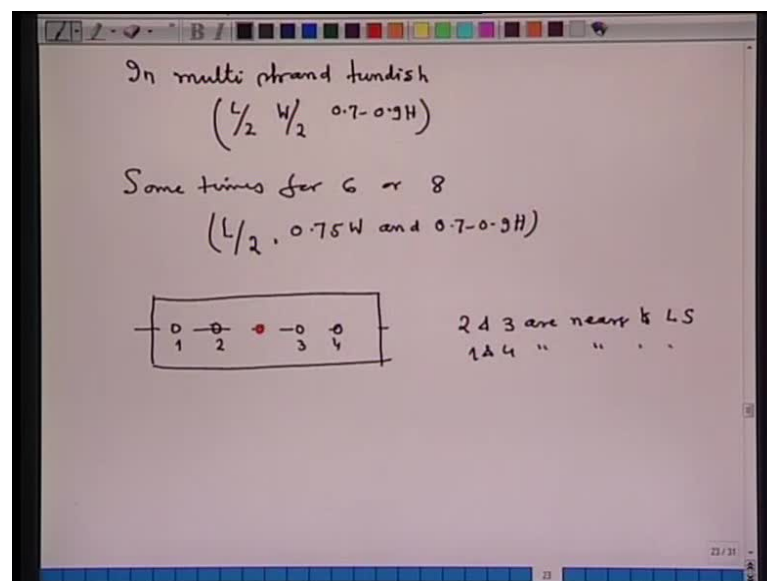 B I
In multi strand tundish
(L/2 W/2 0.7-0.9H)
Some times for 6 or 8
(L/2, 0.75W and 0.7-0.9H)
1 2 3 4
2 & 3 are near to LS
1 & 4 " " . .
23/31
23